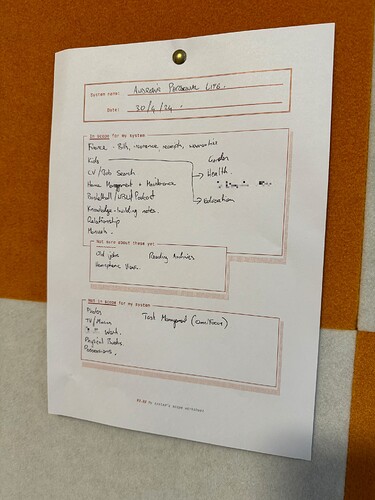 System name: ANDREW'S PERSONAL LIFE.
Date: 30/4/24.
In scope for my system
Finance - Bills, insurance, receipts, warranties
Kids
Garden
CV/Job Search
Health.
Home Management + Maintenance
Basketball / UFLU / Podcast
Knowledge-building notes.
Education
Relationship
Manuals.
Not sure about these yet
Old jobs
Reading Archives
Not in scope for my system
Photos
Task Management (Omnifocus)
TV/Movies
Work.
Physical
Possessions,